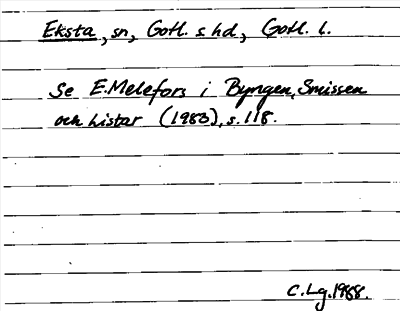 Eksta, sn, Gotl. s. hd, Gotl. l.
Se E. Melefors i Byngen, Smissen
och Listar (1983), s. 118.
C. Lg. 1988.